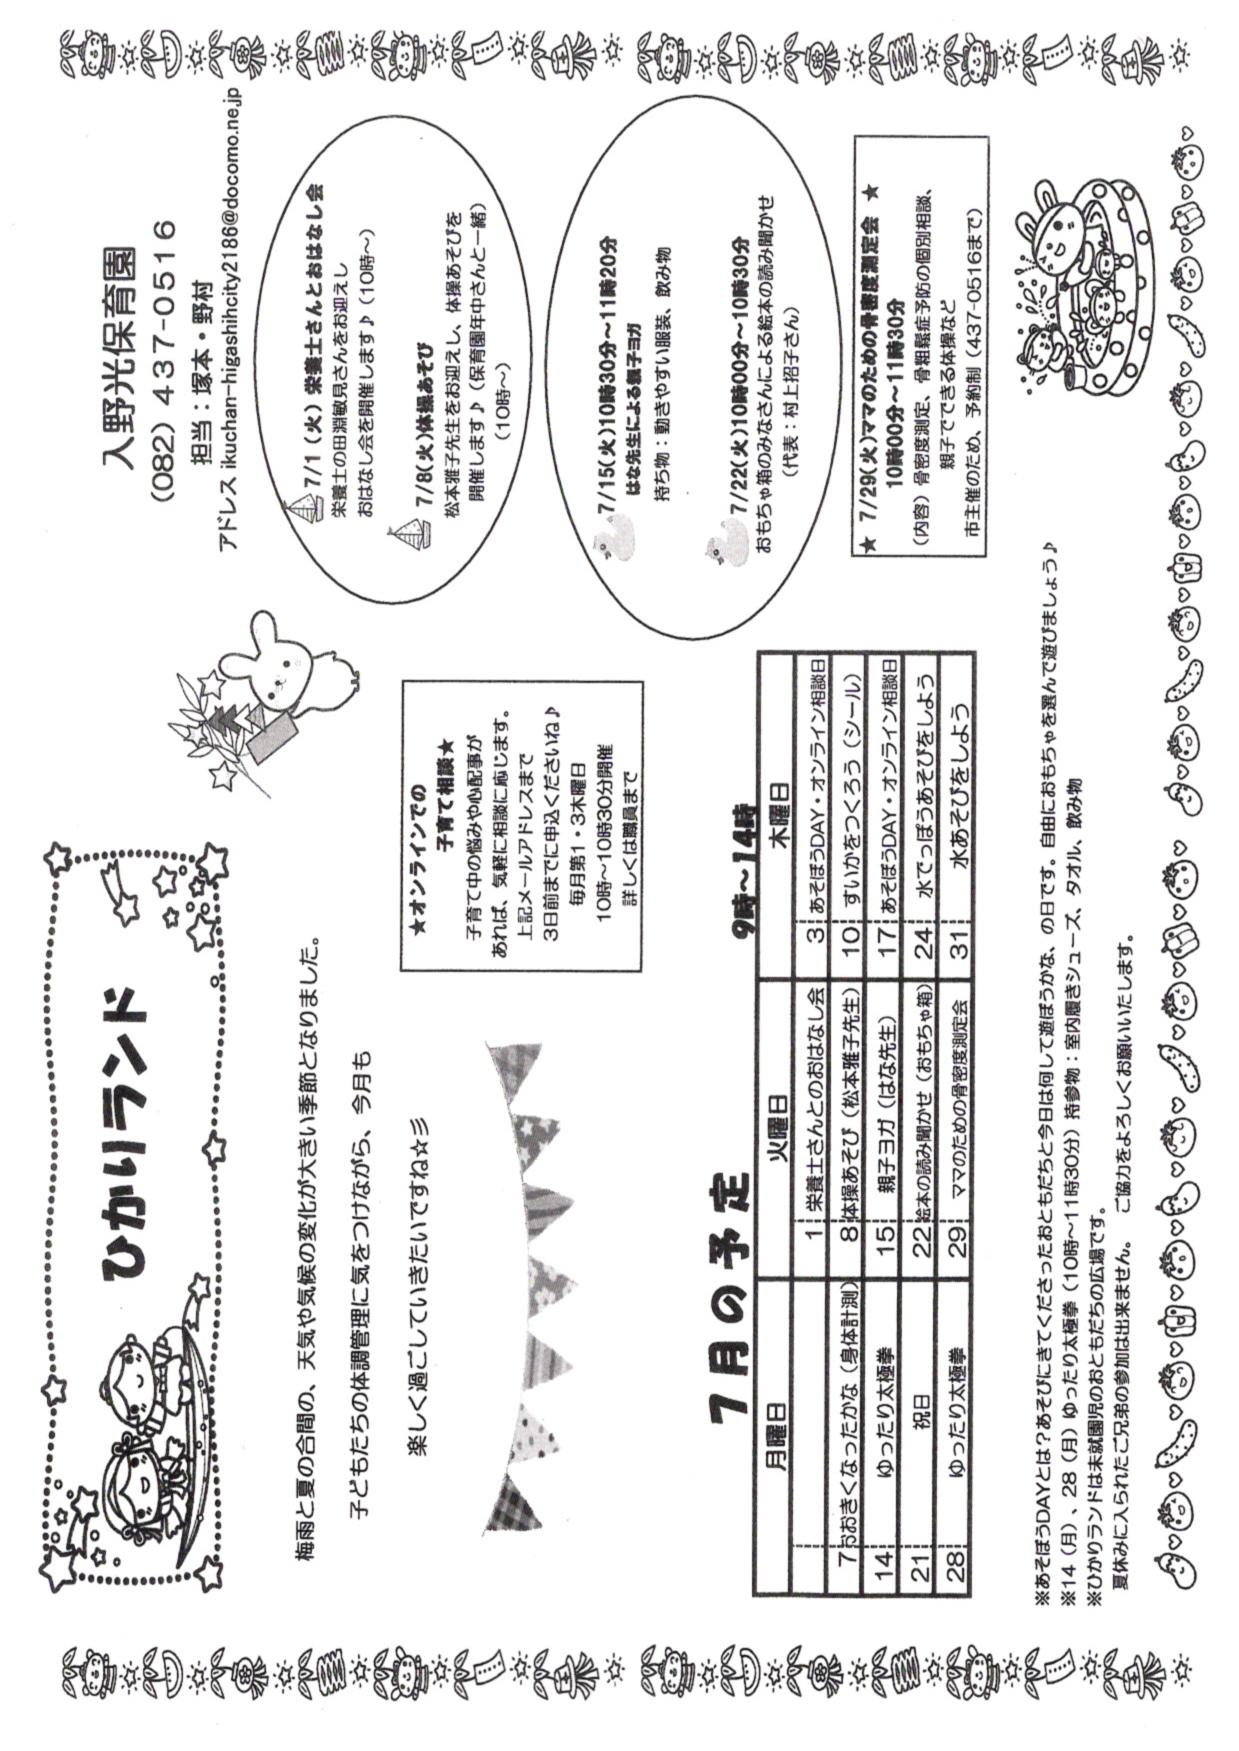 ひかりランド
入野光保育園
(082) 437-0516
担当：塚本・野村
アドレス ikuchan-higashihcity2186@docomo.ne.jp
梅雨と夏の合間の、天気や気候の変化が大きい季節となりました。
子どもたちの体調管理に気をつけながら、今月も
楽しく過ごしていきたいですね☆彡
★オンラインでの
子育て相談★
子育て中の悩みや心配事が
あれば、気軽に相談に応じます。
上記メールアドレスまで
3日前までに申込くださいね♪
毎月第1・3木曜日
10時～10時30分開催
詳しくは職員まで
7/1（火）栄養士さんとおはなし会
栄養士の田淵敏見さんをお迎えし
おはなし会を開催します♪（10時～）
7/8(火)体操あそび
松本雅子先生をお迎えし、体操あそびを
開催します♪（保育園年中さんと一緒）
（10時～）
7/15(火)10時30分～11時20分
はな先生による親子ヨガ
持ち物：動きやすい服装、飲み物
7/22(火)10時00分～10時30分
おもちゃ箱のみなさんによる絵本の読み聞かせ
（代表：村上招子さん）
★ 7/29(火)ママのための骨密度測定会 ★
10時00分～11時30分
（内容）骨密度測定、骨粗鬆症予防の個別相談、
親子でできる体操など
市主催のため、予約制（437-0516まで）
7月の予定
9時～14時
月曜日 火曜日 木曜日
1 栄養士さんとのおはなし会 3 あそぼうDAY・オンライン相談日
7 おおきくなったかな（身体計測） 8 体操あそび（松本雅子先生） 10 すいかをつくろう（シール）
14 ゆったり太極拳 15 親子ヨガ（はな先生） 17 あそぼうDAY・オンライン相談日
21 祝日 22 絵本の読み聞かせ（おもちゃ箱） 24 水でっぽうあそびをしよう
28 ゆったり太極拳 29 ママのための骨密度測定会 31 水あそびをしよう
※あそぼうDAYとは？あそびにきてくださったおともだちと今日は何して遊ぼうかな、の日です。自由におもちゃを選んで遊びましょう♪
※14（月）、28（月）ゆったり太極拳（10時～11時30分）持参物：室内履きシューズ、タオル、飲み物
※ひかりランドは未就園児のおともだちの広場です。
夏休みに入られたご兄弟の参加は出来ません。 ご協力をよろしくお願いいたします。